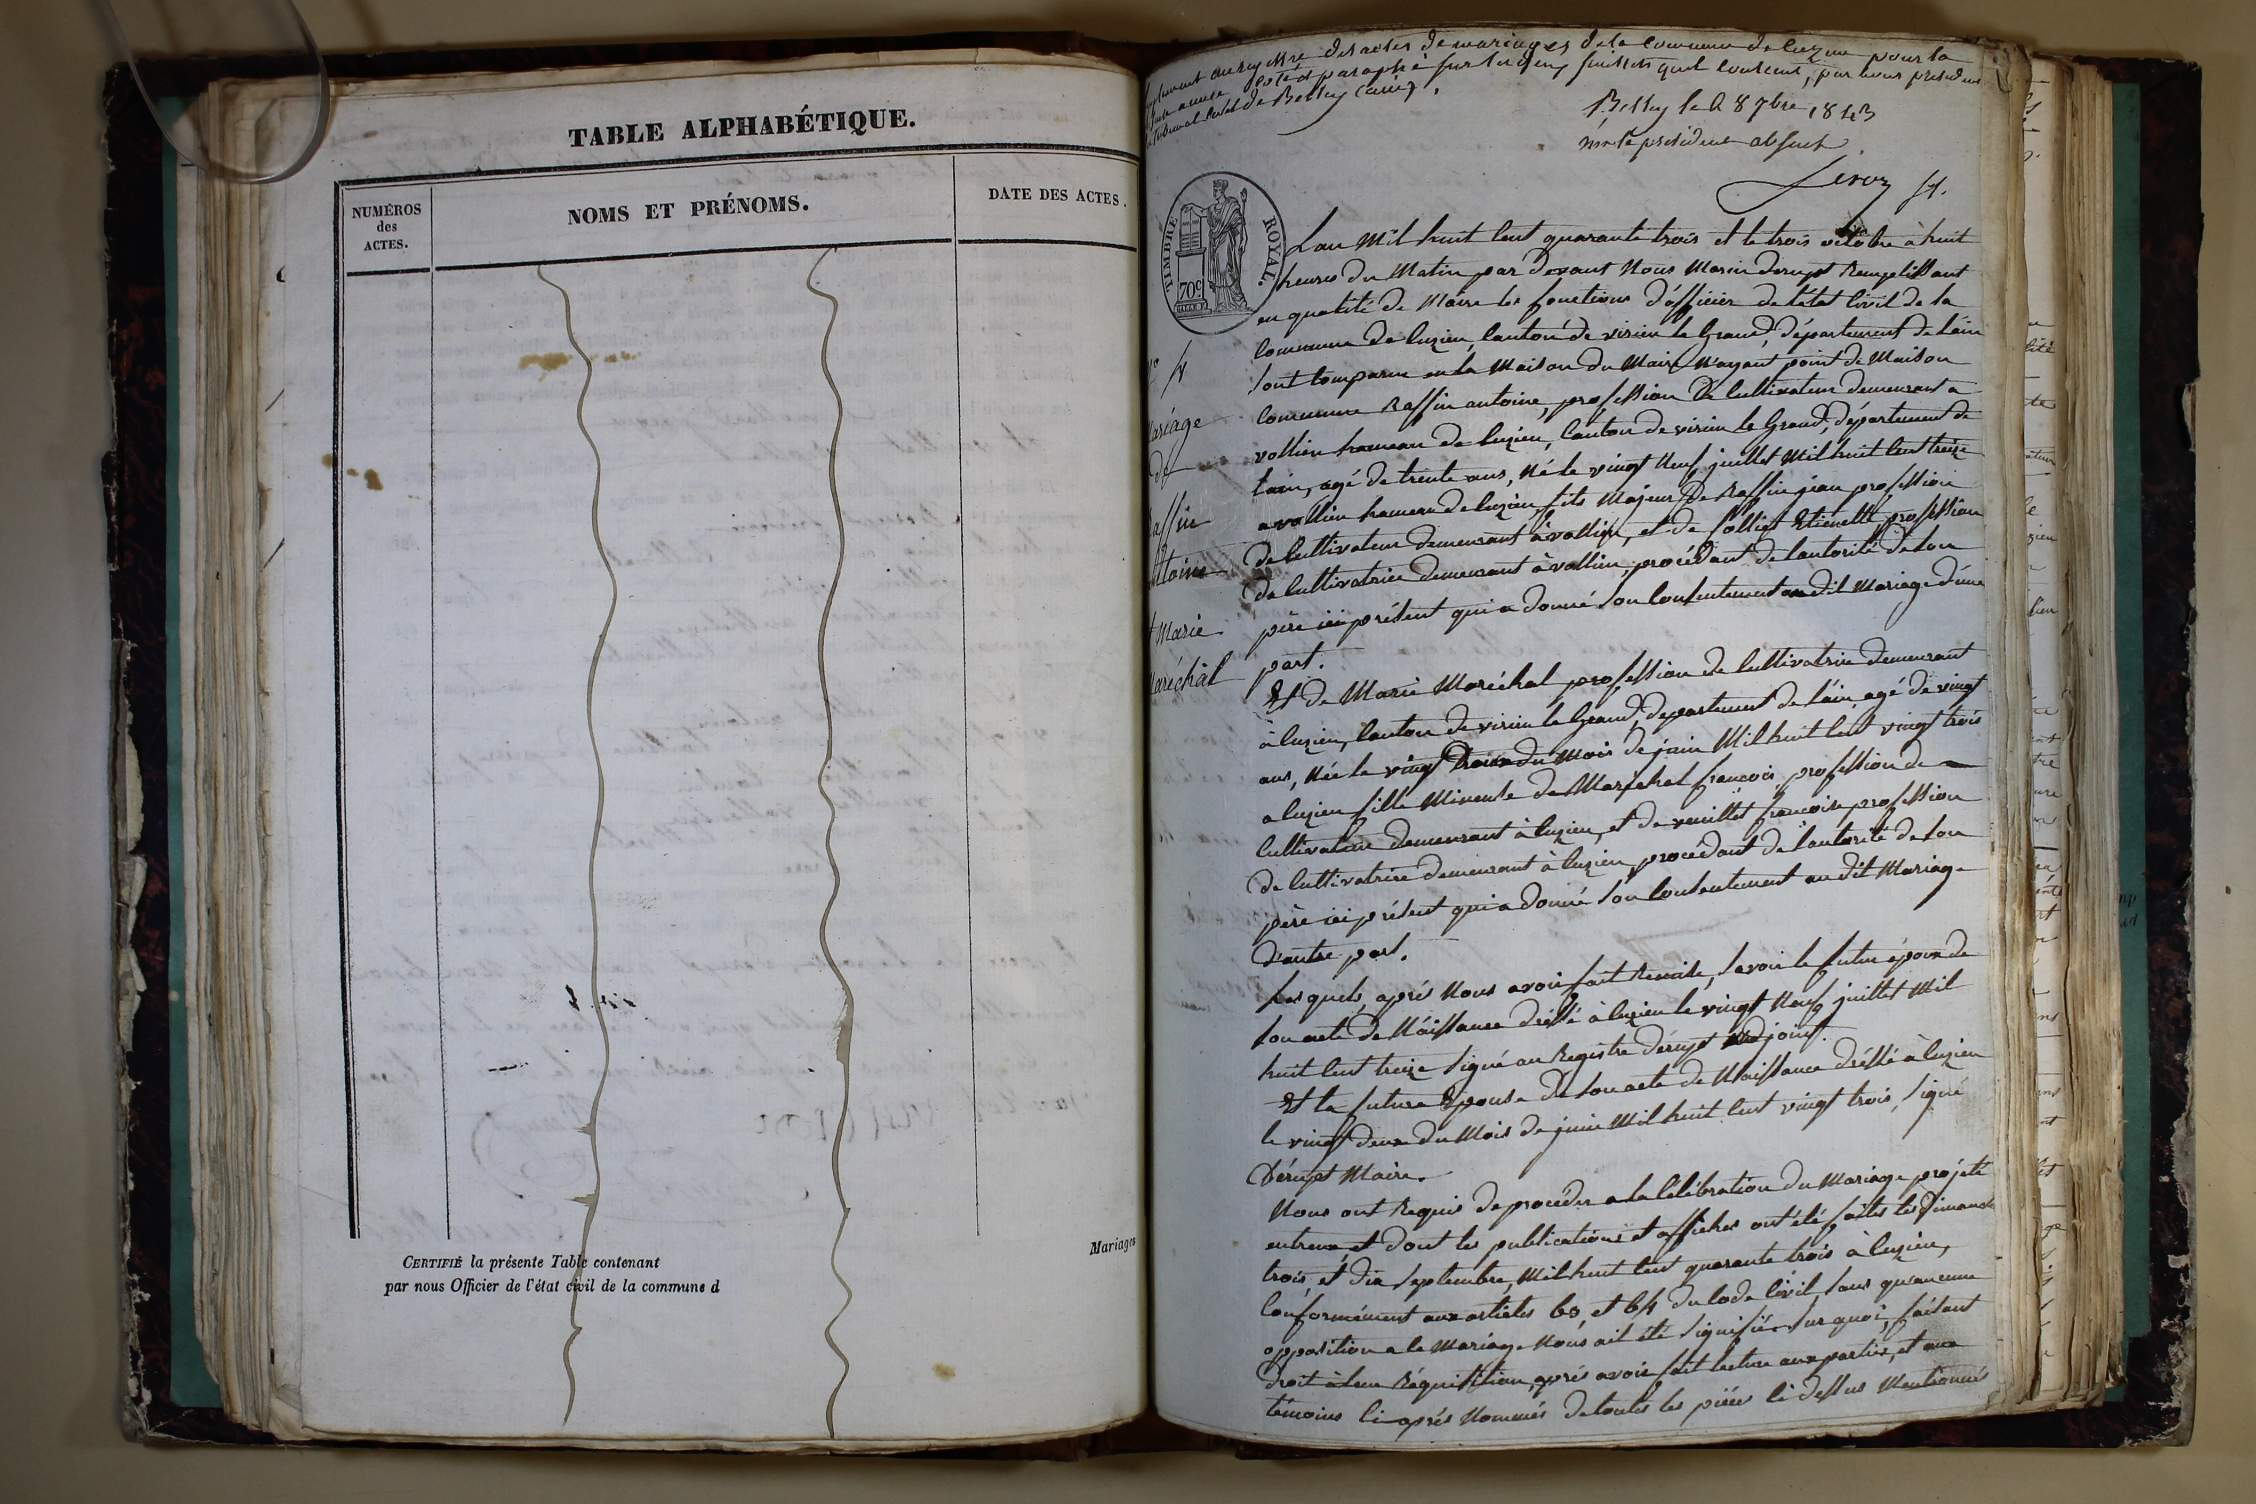 TABLE ALPHABÉTIQUE.
NUMÉROS
des
ACTES.
NOMS ET PRÉNOMS.
DATE DES ACTES.
CERTIFIÉ la présente Table contenant
par nous Officier de l'état civil de la commune d
Mariages
au registre des actes de mariages de la commune de Cuzieu pour la
année coté et paraphé sur les feuillets qu'il contient, par nous président
tribunal civil de Belley (ain).
Belley le 8 9bre 1843
le président absent
TIMBRE ROYAL.
70c
L'an Mil huit Cent quarante trois et le trois octobre à huit
heures du Matin par devant Nous Marin Derupt Remplissant
en qualité de Maire les fonctions d'officier de l'état Civil de la
Commune de Cuzieu, Canton de virieu le Grand, département de l'ain
Sont Comparu en la Maison du Maire N'ayant point de Maison
Commune Raffin antoine, profession De Cultivateur demeurant a
vollien hameau de Cuzieu, Canton de virieu le Grand, département de
l'ain, agé de trente ans, Né le vingt Neuf juillet Mil huit Cent treize
a vollien hameau de Cuzieu fils Majeur De Raffin jean profession
de Cultivateur demeurant à vollien, et de Etienette profession
de Cultivatrice demeurant à vollien, procédant de l'autorité de Son
père ici présent qui a donné Son Consentement au dit Mariage d'une
part.
Et de Marie Maréchal profession de Cultivatrice demeurant
à Cuzieu, Canton de virieu le Grand, département de l'ain, agé de vingt
ans, Née le vingt du Mois de juin Mil huit Cent vingt trois
a Cuzieu fille Mineure de Maréchal francois profession de
Cultivateur demeurant à Cuzieu, et de francoise profession
de Cultivatrice demeurant à Cuzieu procédant de l'autorité de Son
père ici présent qui a donné Son Consentement au dit Mariage
d'autre part.
Lesquels, après Nous avoir fait Remise, Savoir le futur époux de
Son acte de Naissance dréssé à Cuzieu le vingt Neuf juillet Mil
huit Cent treize Signé au Registre Dérupt adjoint.
Et la future Epouse de Son acte de Naissance dréssé à Cuzieu
le vingt deux du Mois de juin Mil huit Cent vingt trois, Signé
Dérupt Maire.
Nous ont Requis de procéder a la Célébration du Mariage projeté
entreux, et dont les publications et affiches ont été faites les Dimanches
trois, et dix Septembre, Mil huit Cent quarante trois à Cuzieu,
Conformément aux articles 63, et 64 du Code Civil, Sans qu'aucune
opposition a le Mariage Nous ait été Signifiée. Sur quoi, faisant
droit à leur Réquisition, après avoir fait lecture aux parties, et aux
témoins Ci-après Nommés de toutes les pièces Ci dessus Mentionnés
4
Mariage
de
Raffin
antoine
et Marie
Maréchal